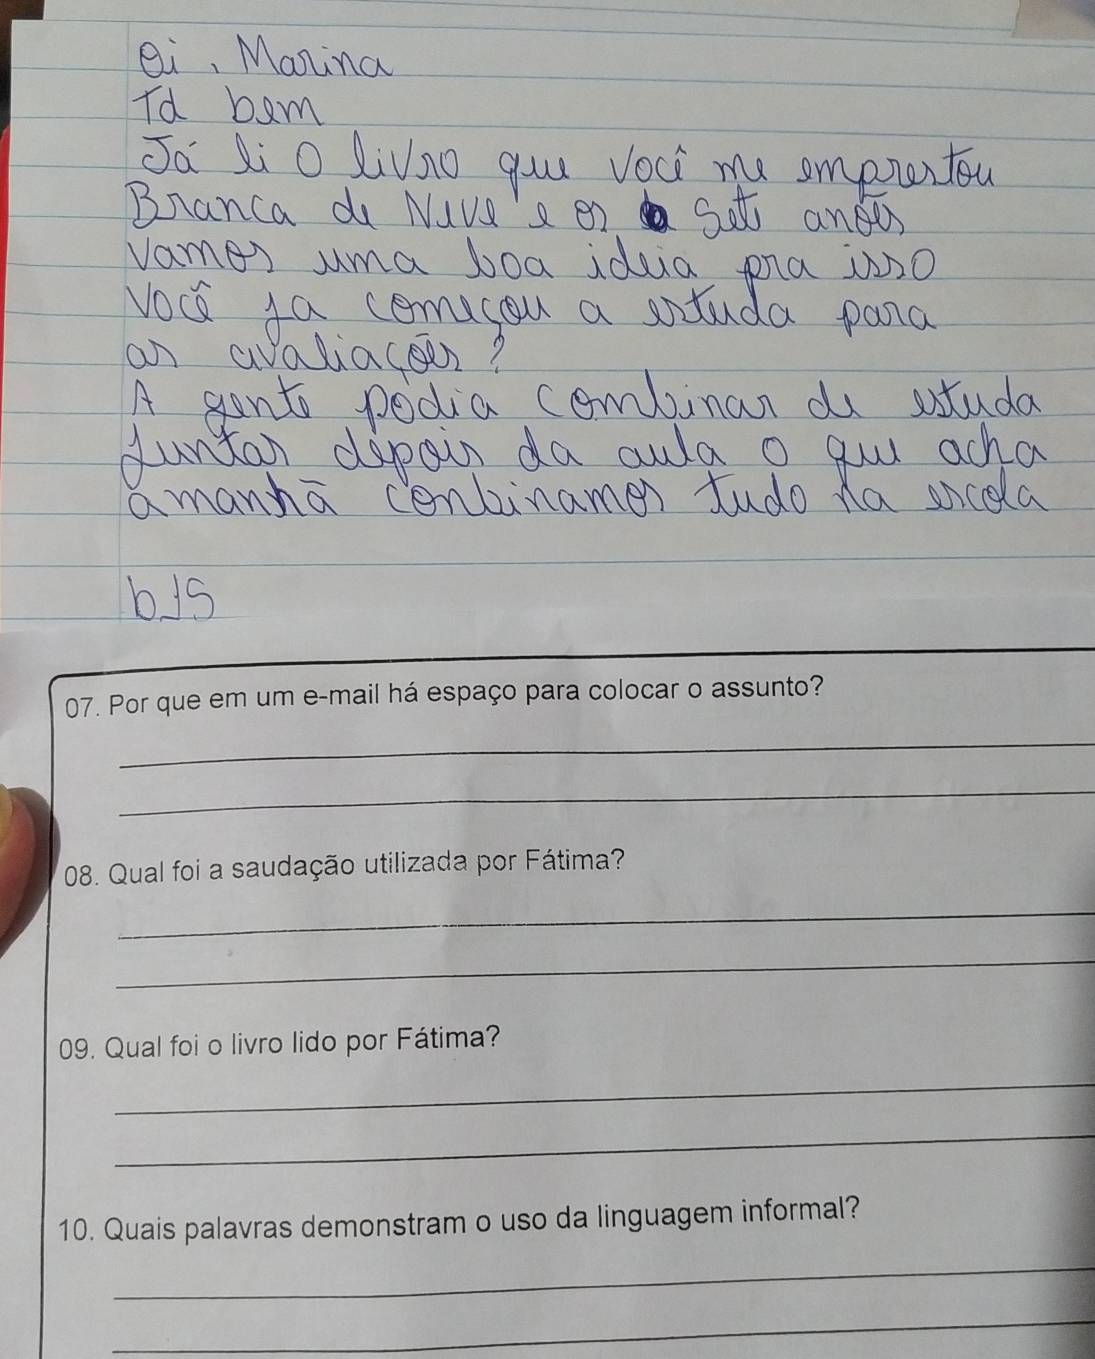 Oi, Marina
Td bem
Já li o livro que você me emprestou
Branca de Neve e os Sete anões
Vamos uma boa ideia pra isso
Você ja começou a estuda para
as avaliações?
A gente podia combinar de estuda
Juntas depois da aula o que acha
amanhã conbinamos tudo na escola
bjs
07. Por que em um e-mail há espaço para colocar o assunto?
08. Qual foi a saudação utilizada por Fátima?
09. Qual foi o livro lido por Fátima?
10. Quais palavras demonstram o uso da linguagem informal?